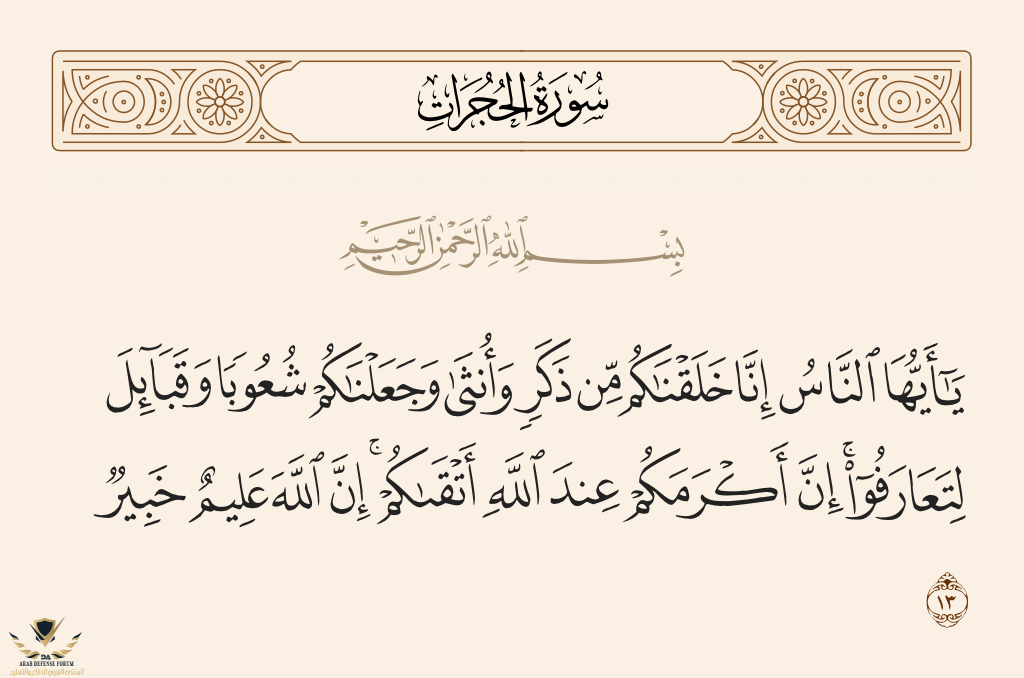 سُورَةُ الحُجُرَاتِ
بِسْمِ ٱللَّهِ ٱلرَّحْمَٰنِ ٱلرَّحِيمِ
يَـٰٓأَيُّهَا ٱلنَّاسُ إِنَّا خَلَقْنَـٰكُم مِّن ذَكَرٍ وَأُنثَىٰ وَجَعَلْنَـٰكُمْ شُعُوبًا وَقَبَآئِلَ
لِتَعَارَفُوٓا۟ ۚ إِنَّ أَكْرَمَكُمْ عِندَ ٱللَّهِ أَتْقَىٰكُمْ ۚ إِنَّ ٱللَّهَ عَلِيمٌ خَبِيرٌ
١٣
ARAB DEFENSE FORUM
المنتدى العربي للدفاع والتسليح